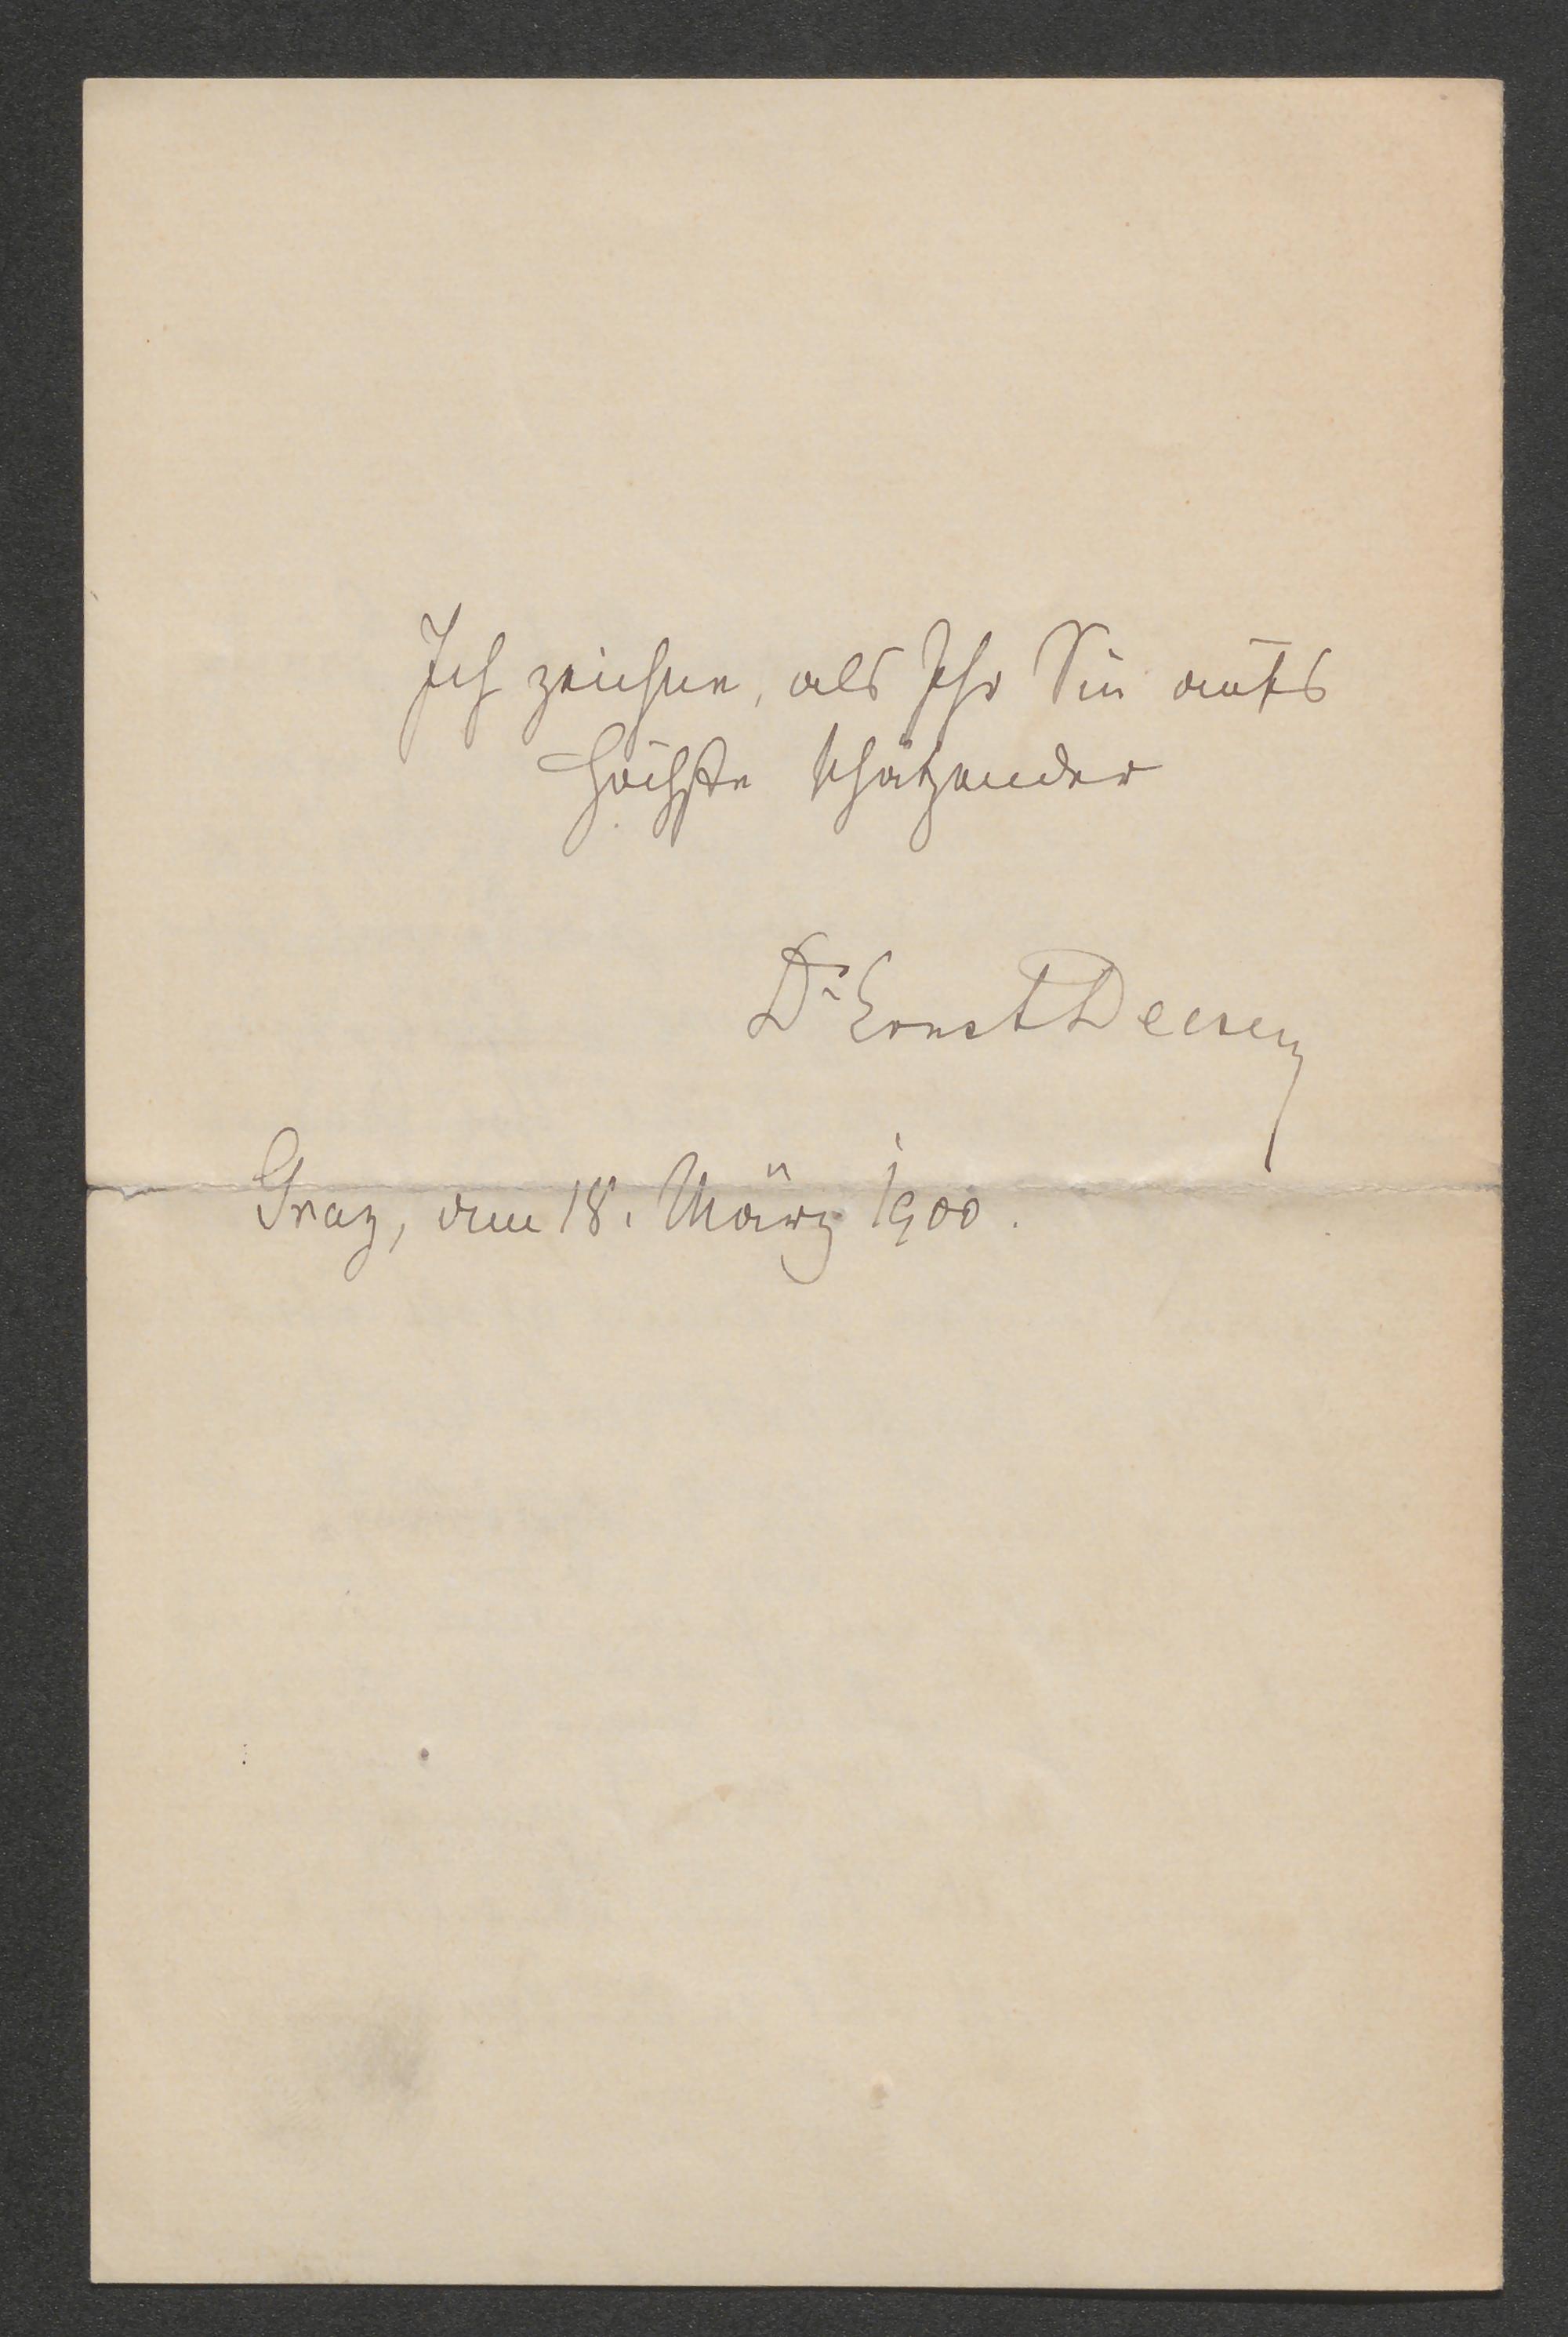 Ich zeichne, als Ihr Sie aufs
höchste schätzender
Dr Ernst Decsey
Graz, am 18. März 1900.